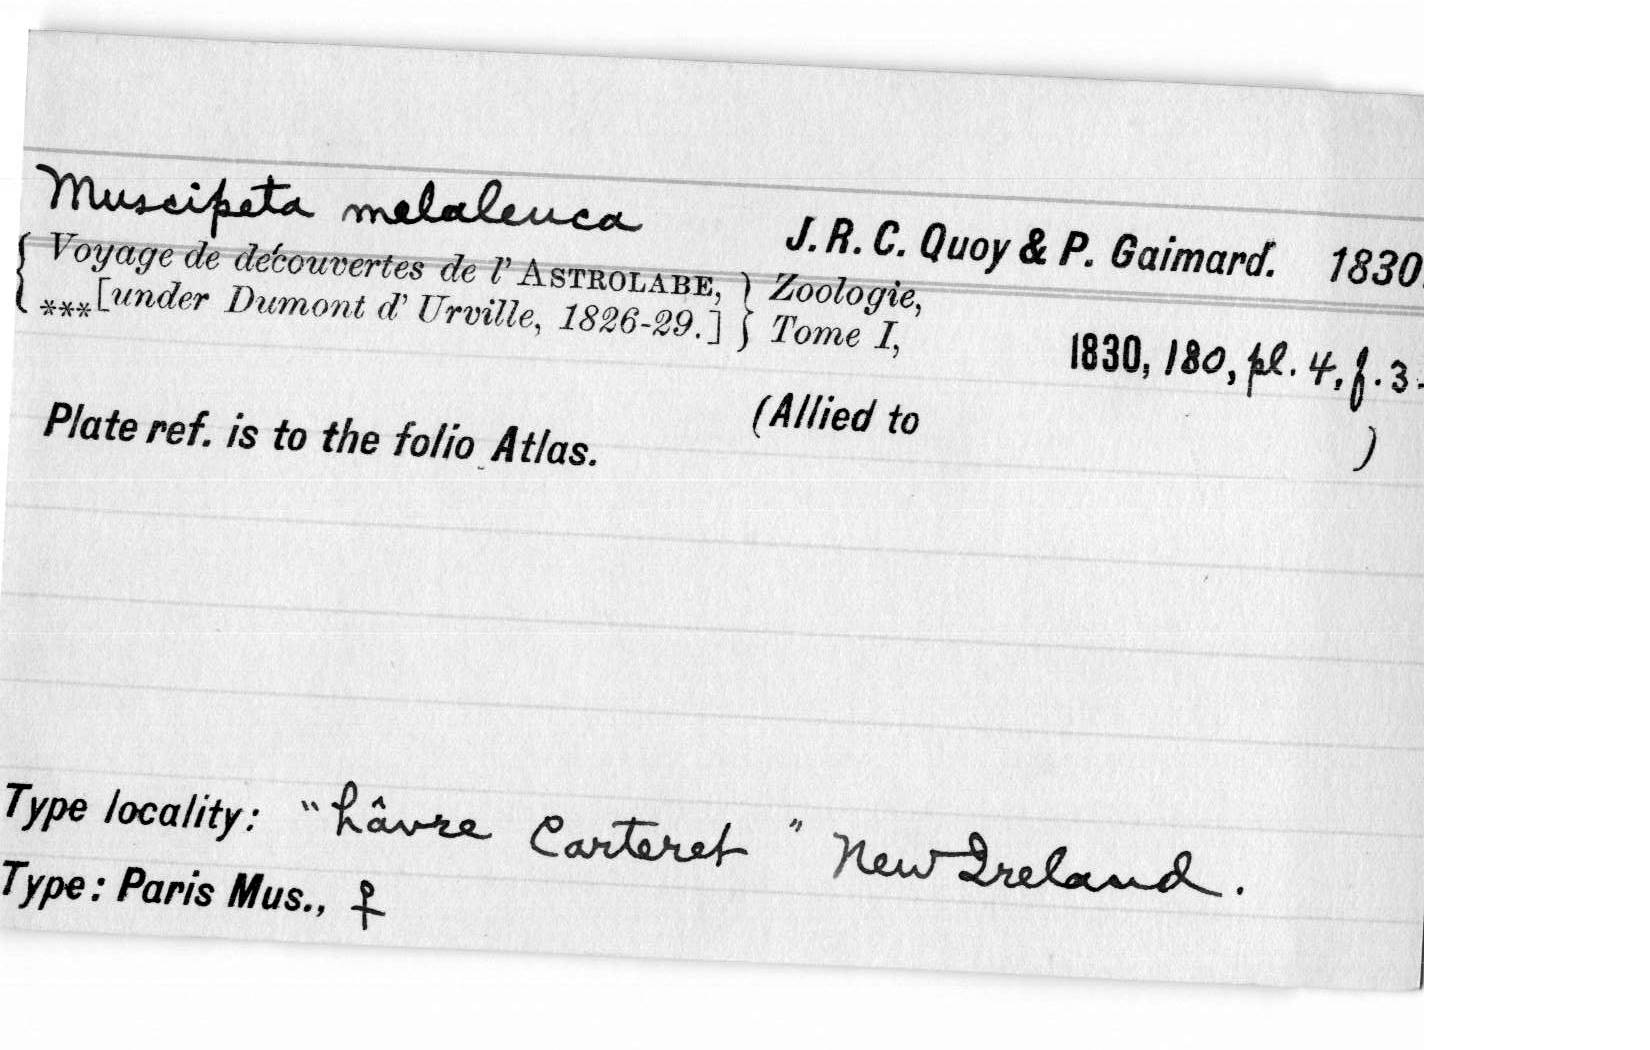 Muscipeta melaleuca J. R. C. Quoy & P. Gaimard. 1830.
{ Voyage de découvertes de l' ASTROLABE, } Zoologie,
***[under Dumont d' Urville, 1826-29.] Tome I, 1830, 180, pl. 4, f. 3.
Plate ref. is to the folio Atlas. (Allied to )
Type locality: "hâvre Carteret" New Ireland.
Type: Paris Mus., ♀